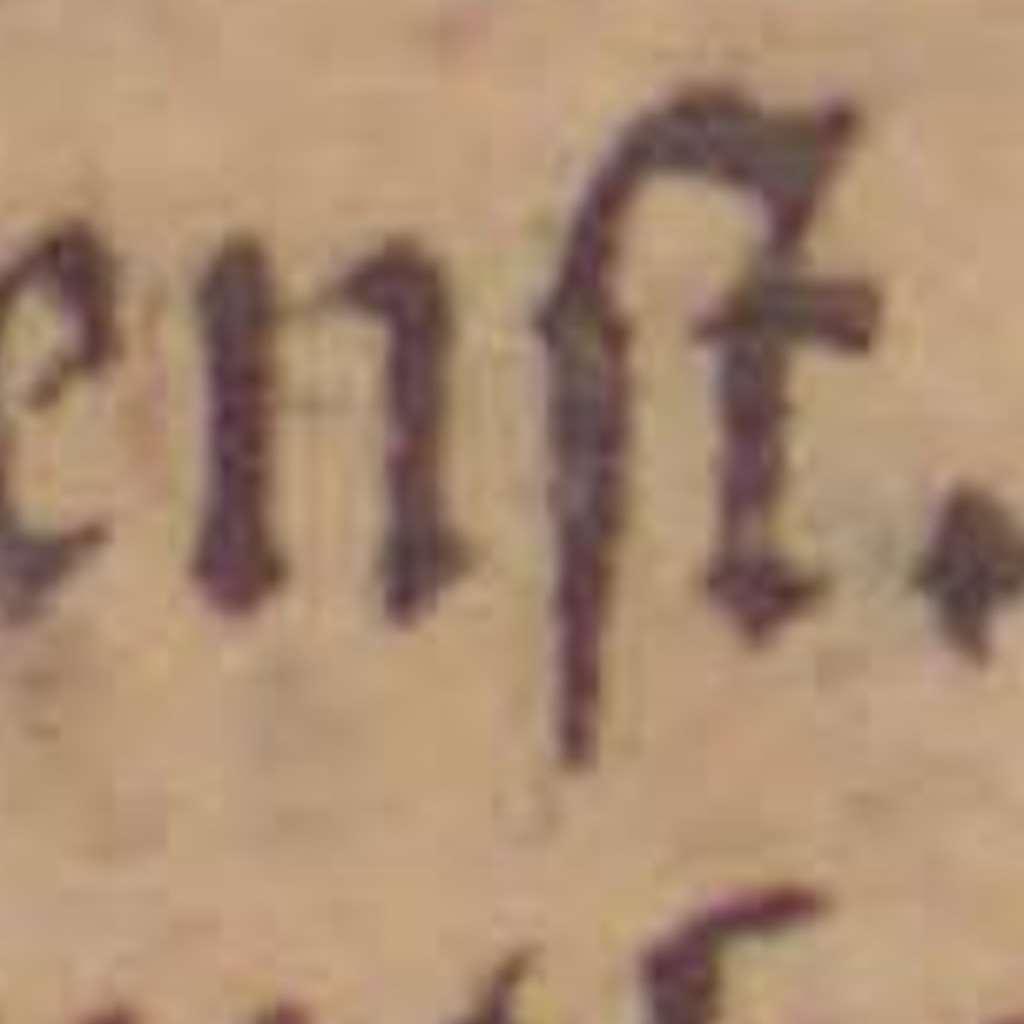 enſt.